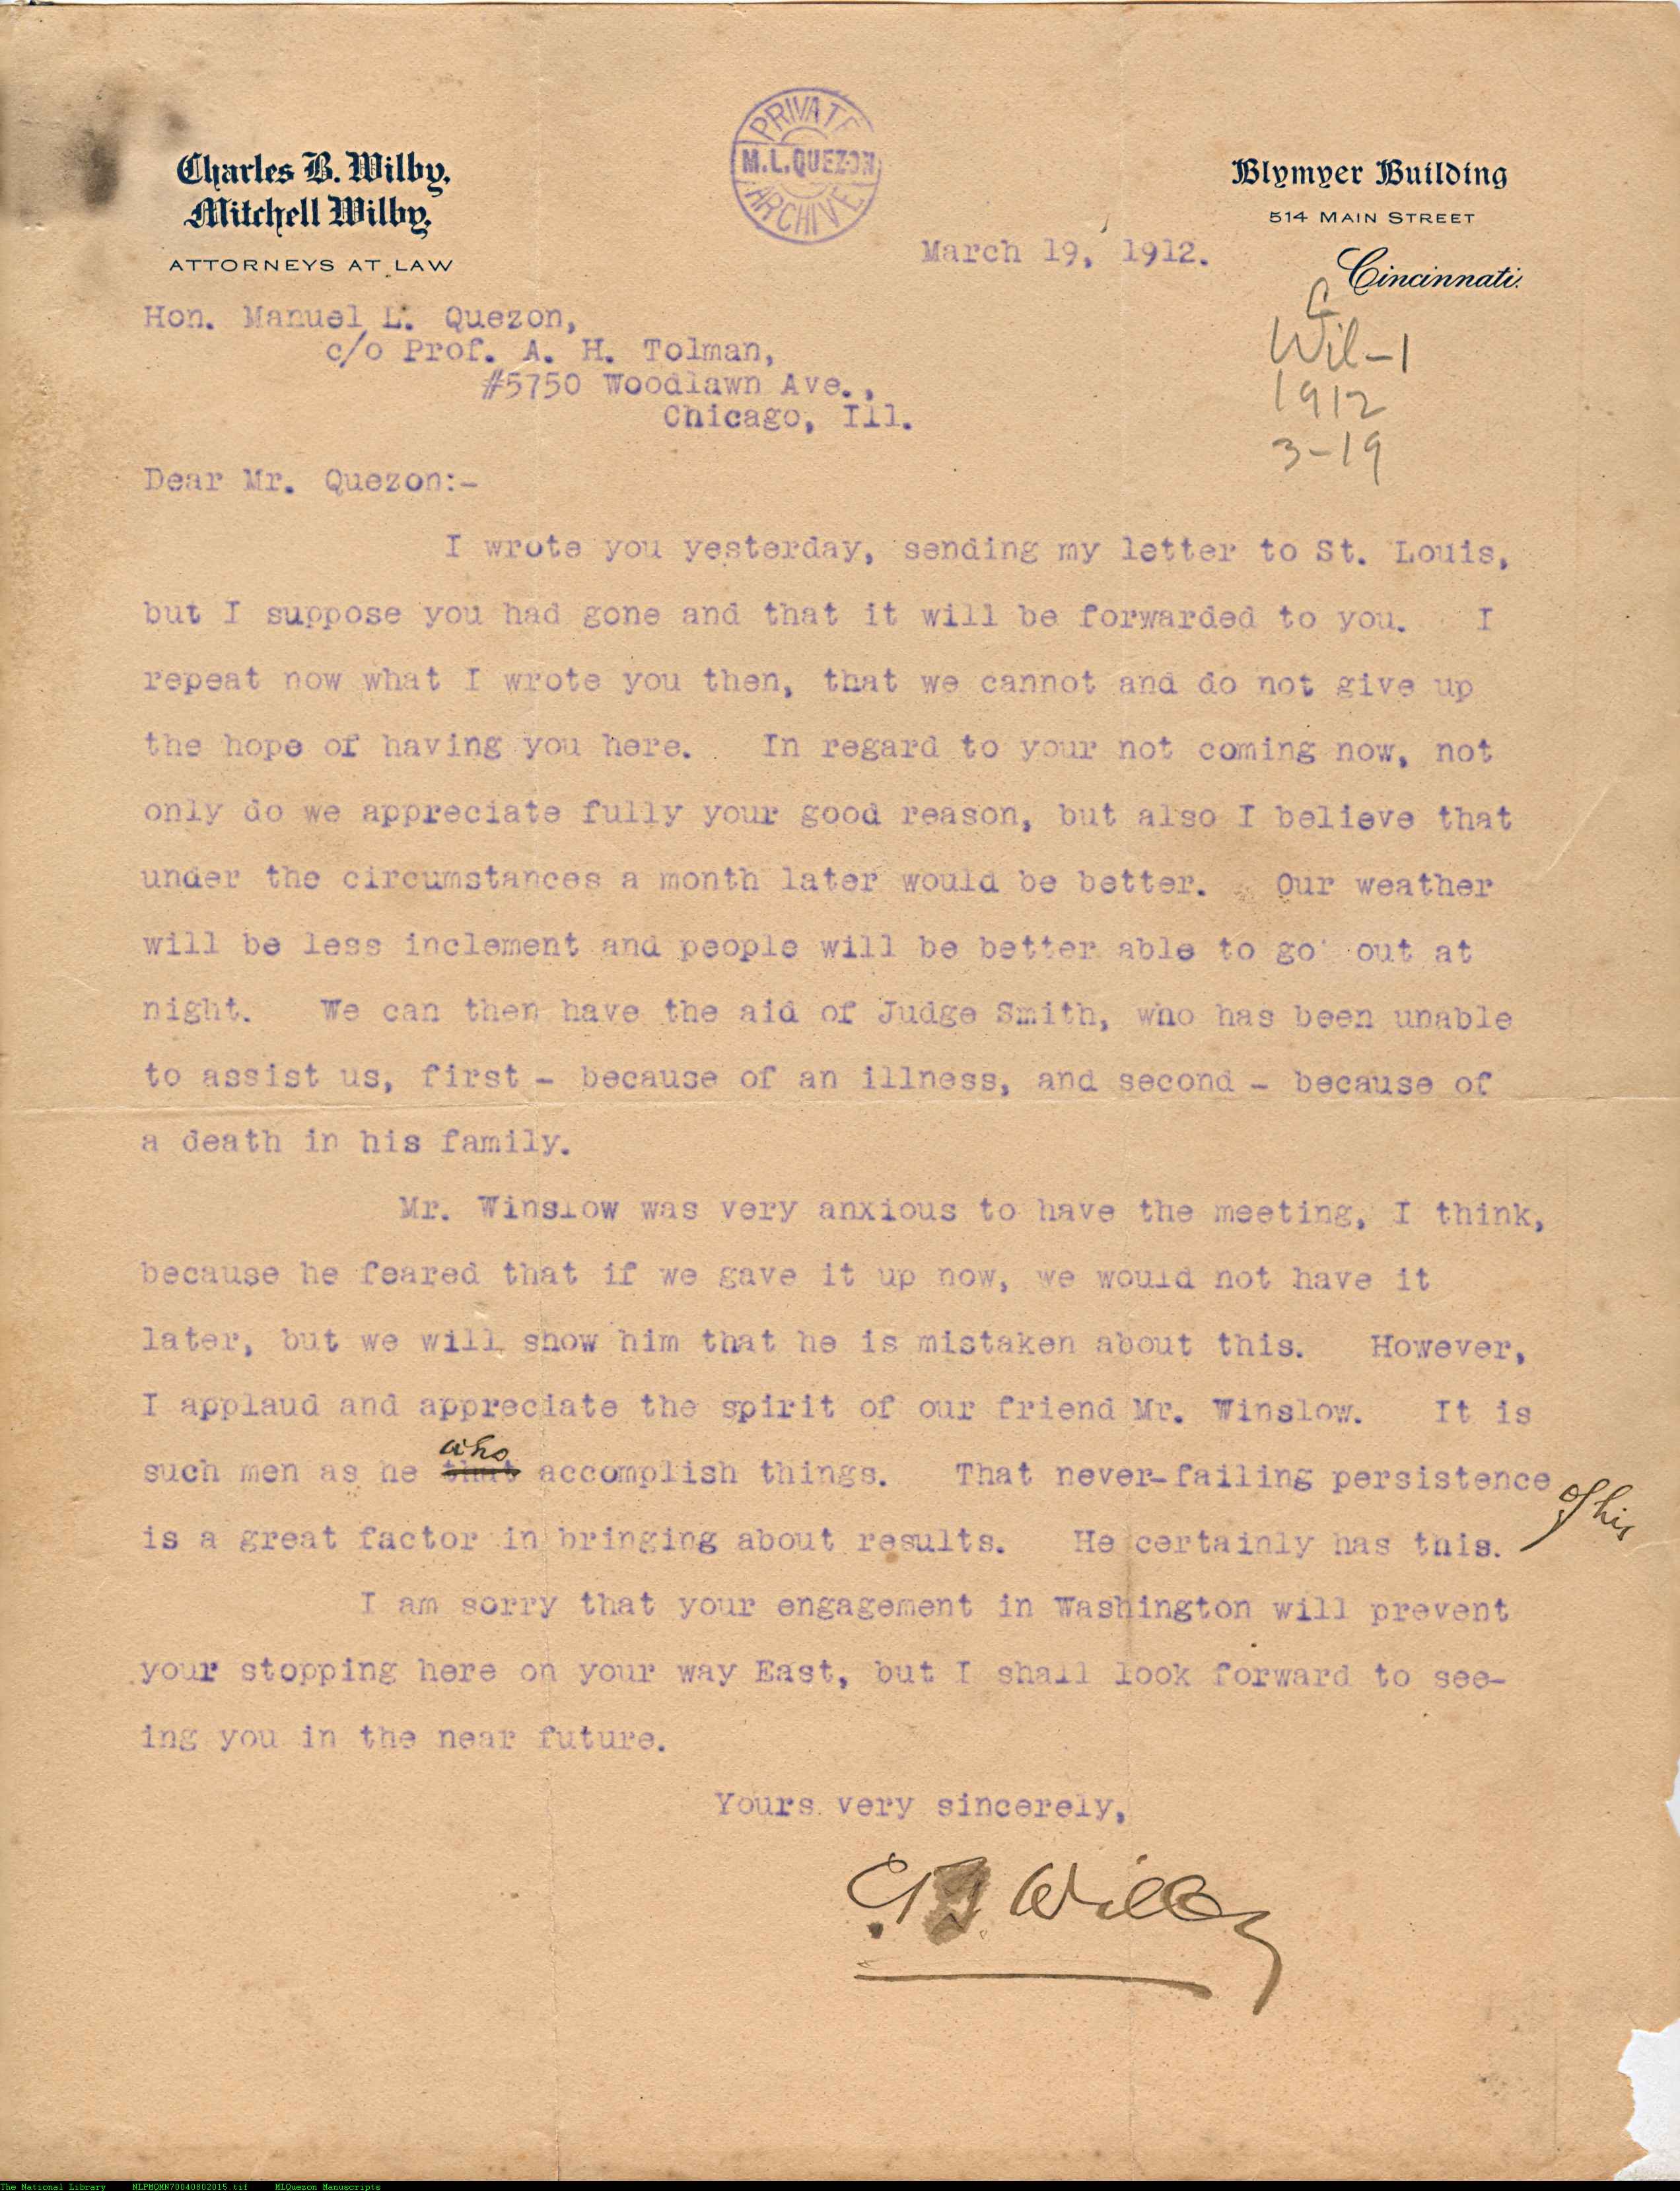 Charles B. Wilby,
Mitchell Wilby,
ATTORNEYS AT LAW
PRIVATE
M.L.QUEZON
ARCHIVE
Blymyer Building
514 MAIN STREET
Cincinnati.
March 19, 1912.
Wil-1
1912
3-19
Hon. Manuel L. Quezon,
c/o Prof. A. H. Tolman,
#5750 Woodlawn Ave.,
Chicago, Ill.
Dear Mr. Quezon:-
I wrote you yesterday, sending my letter to St. Louis,
but I suppose you had gone and that it will be forwarded to you. I
repeat now what I wrote you then, that we cannot and do not give up
the hope of having you here. In regard to your not coming now, not
only do we appreciate fully your good reason, but also I believe that
under the circumstances a month later would be better. Our weather
will be less inclement and people will be better able to go out at
night. We can then have the aid of Judge Smith, who has been unable
to assist us, first - because of an illness, and second - because of
a death in his family.
Mr. Winslow was very anxious to have the meeting, I think,
because he feared that if we gave it up now, we would not have it
later, but we will show him that he is mistaken about this. However,
I applaud and appreciate the spirit of our friend Mr. Winslow. It is
who
such men as he that accomplish things. That never-failing persistence
of his
is a great factor in bringing about results. He certainly has this.
I am sorry that your engagement in Washington will prevent
your stopping here on your way East, but I shall look forward to see-
ing you in the near future.
Yours very sincerely,
Wilby
The National Library NLPMQMN70040802015.tif MLQuezon Manuscripts